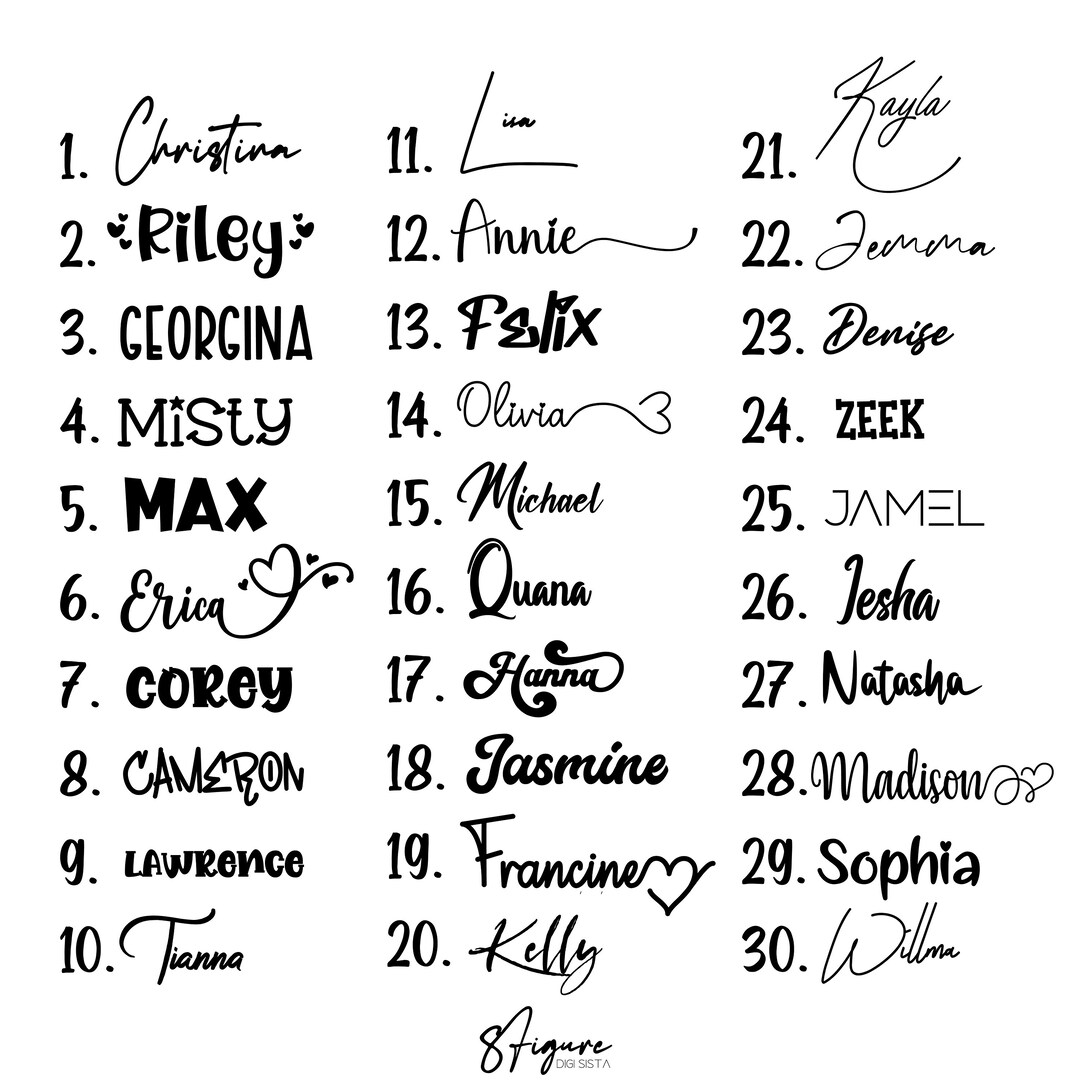 1. Christina
2. Riley
3. GEORGINA
4. MiStY
5. MAX
6. Erica
7. COREY
8. CAMERON
9. LAWRence
10. Tianna
11. Lisa
12. Annie
13. Felix
14. Olivia
15. Michael
16. Quana
17. Hanna
18. Jasmine
19. Francine
20. Kelly
21. Kayla
22. Jemma
23. Denise
24. ZEEK
25. JAMEL
26. Iesha
27. Natasha
28. Madison
29. Sophia
30. Willma
8Figure
DIGI SISTA